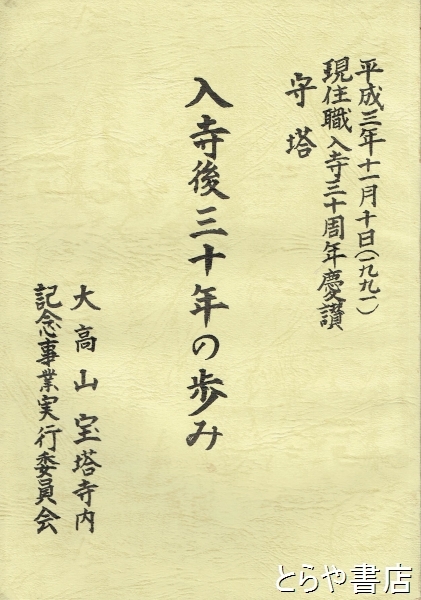 平成三年十一月十日(一九九一)
現住職入寺三十周年慶讃
守塔
入寺後三十年の歩み
大高山宝塔寺内
記念事業実行委員会
とらや書店